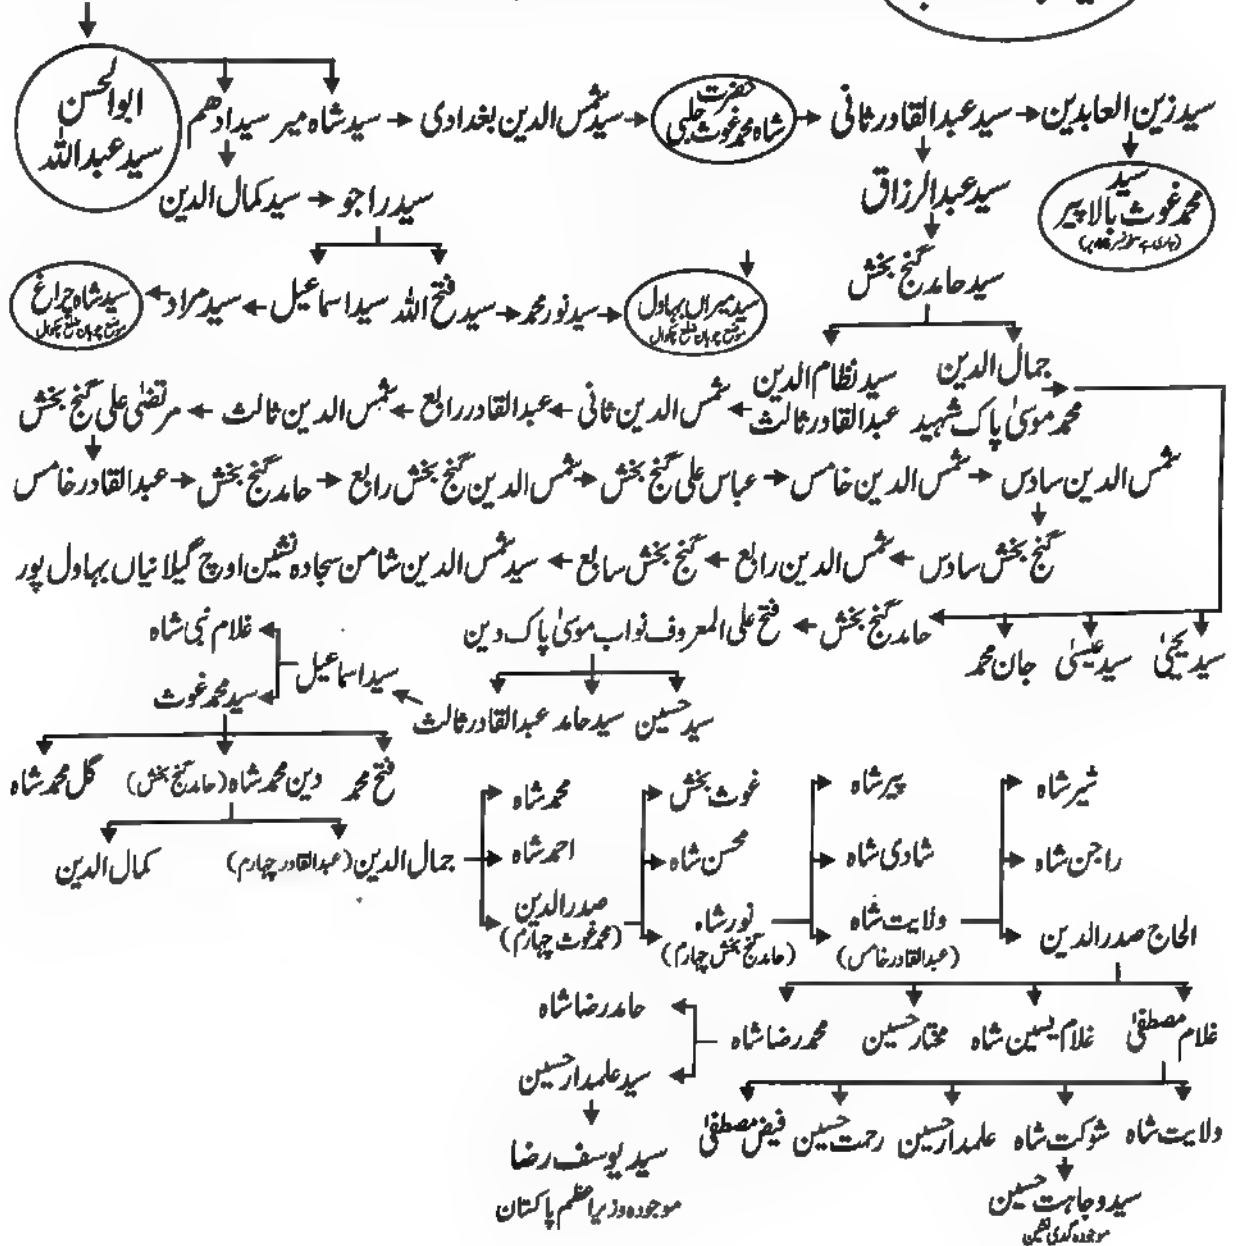 ابوالحسن
سید عبداللہ
سید ادھم
سید شاہ میر
سید شمس الدین بغدادی
حضرت
شاہ محمد غوث حلبی
سید عبدالقادر ثانی
سید زین العابدین
سید
محمد غوث بالا پیر
سید کمال الدین
سید راجو
سید عبدالرزاق
سید حامد گنج بخش
سید شاہ چراغ
موضع چوہان ضلع چکوال
سید مراد
سید اسماعیل
سید فتح اللہ
سید نور محمد
سید میراں بہاول
موضع چوہان ضلع چکوال
جمال الدین
سید نظام الدین
محمد موسیٰ پاک شہید
عبدالقادر ثالث
شمس الدین ثانی
عبدالقادر رابع
شمس الدین ثالث
مرتضیٰ علی گنج بخش
عبدالقادر خامس
حامد گنج بخش
شمس الدین گنج بخش رابع
عباس علی گنج بخش
شمس الدین خامس
شمس الدین سادس
گنج بخش سادس
شمس الدین رابع
گنج بخش سابع
سید شمس الدین شامن سجادہ نشین اوچ گیلانیاں بہاول پور
سید یحییٰ
سید عیسیٰ
جان محمد
حامد گنج بخش
فتح علی المعروف نواب موسیٰ پاک دین
سید حسین
سید حامد
عبدالقادر ثالث
سید اسماعیل
غلام نبی شاہ
سید محمد غوث
فتح محمد
دین محمد شاہ (حامد گنج بخش)
گل محمد شاہ
جمال الدین (عبدالقادر چہارم)
کمال الدین
محمد شاہ
احمد شاہ
صدر الدین
(محمد غوث چہارم)
غوث بخش
محسن شاہ
نور شاہ
(حامد گنج بخش چہارم)
پیر شاہ
شادی شاہ
ولایت شاہ
(عبدالقادر خامس)
شیر شاہ
راجن شاہ
الحاج صدر الدین
غلام مصطفیٰ
غلام یسین شاہ
مختار حسین
محمد رضا شاہ
حامد رضا شاہ
سید علمدار حسین
سید یوسف رضا
موجودہ وزیر اعظم پاکستان
ولایت شاہ
شوکت شاہ
علمدار حسین
رحمت حسین
فیض مصطفیٰ
سید وجاہت حسین
موجودہ گدی نشین